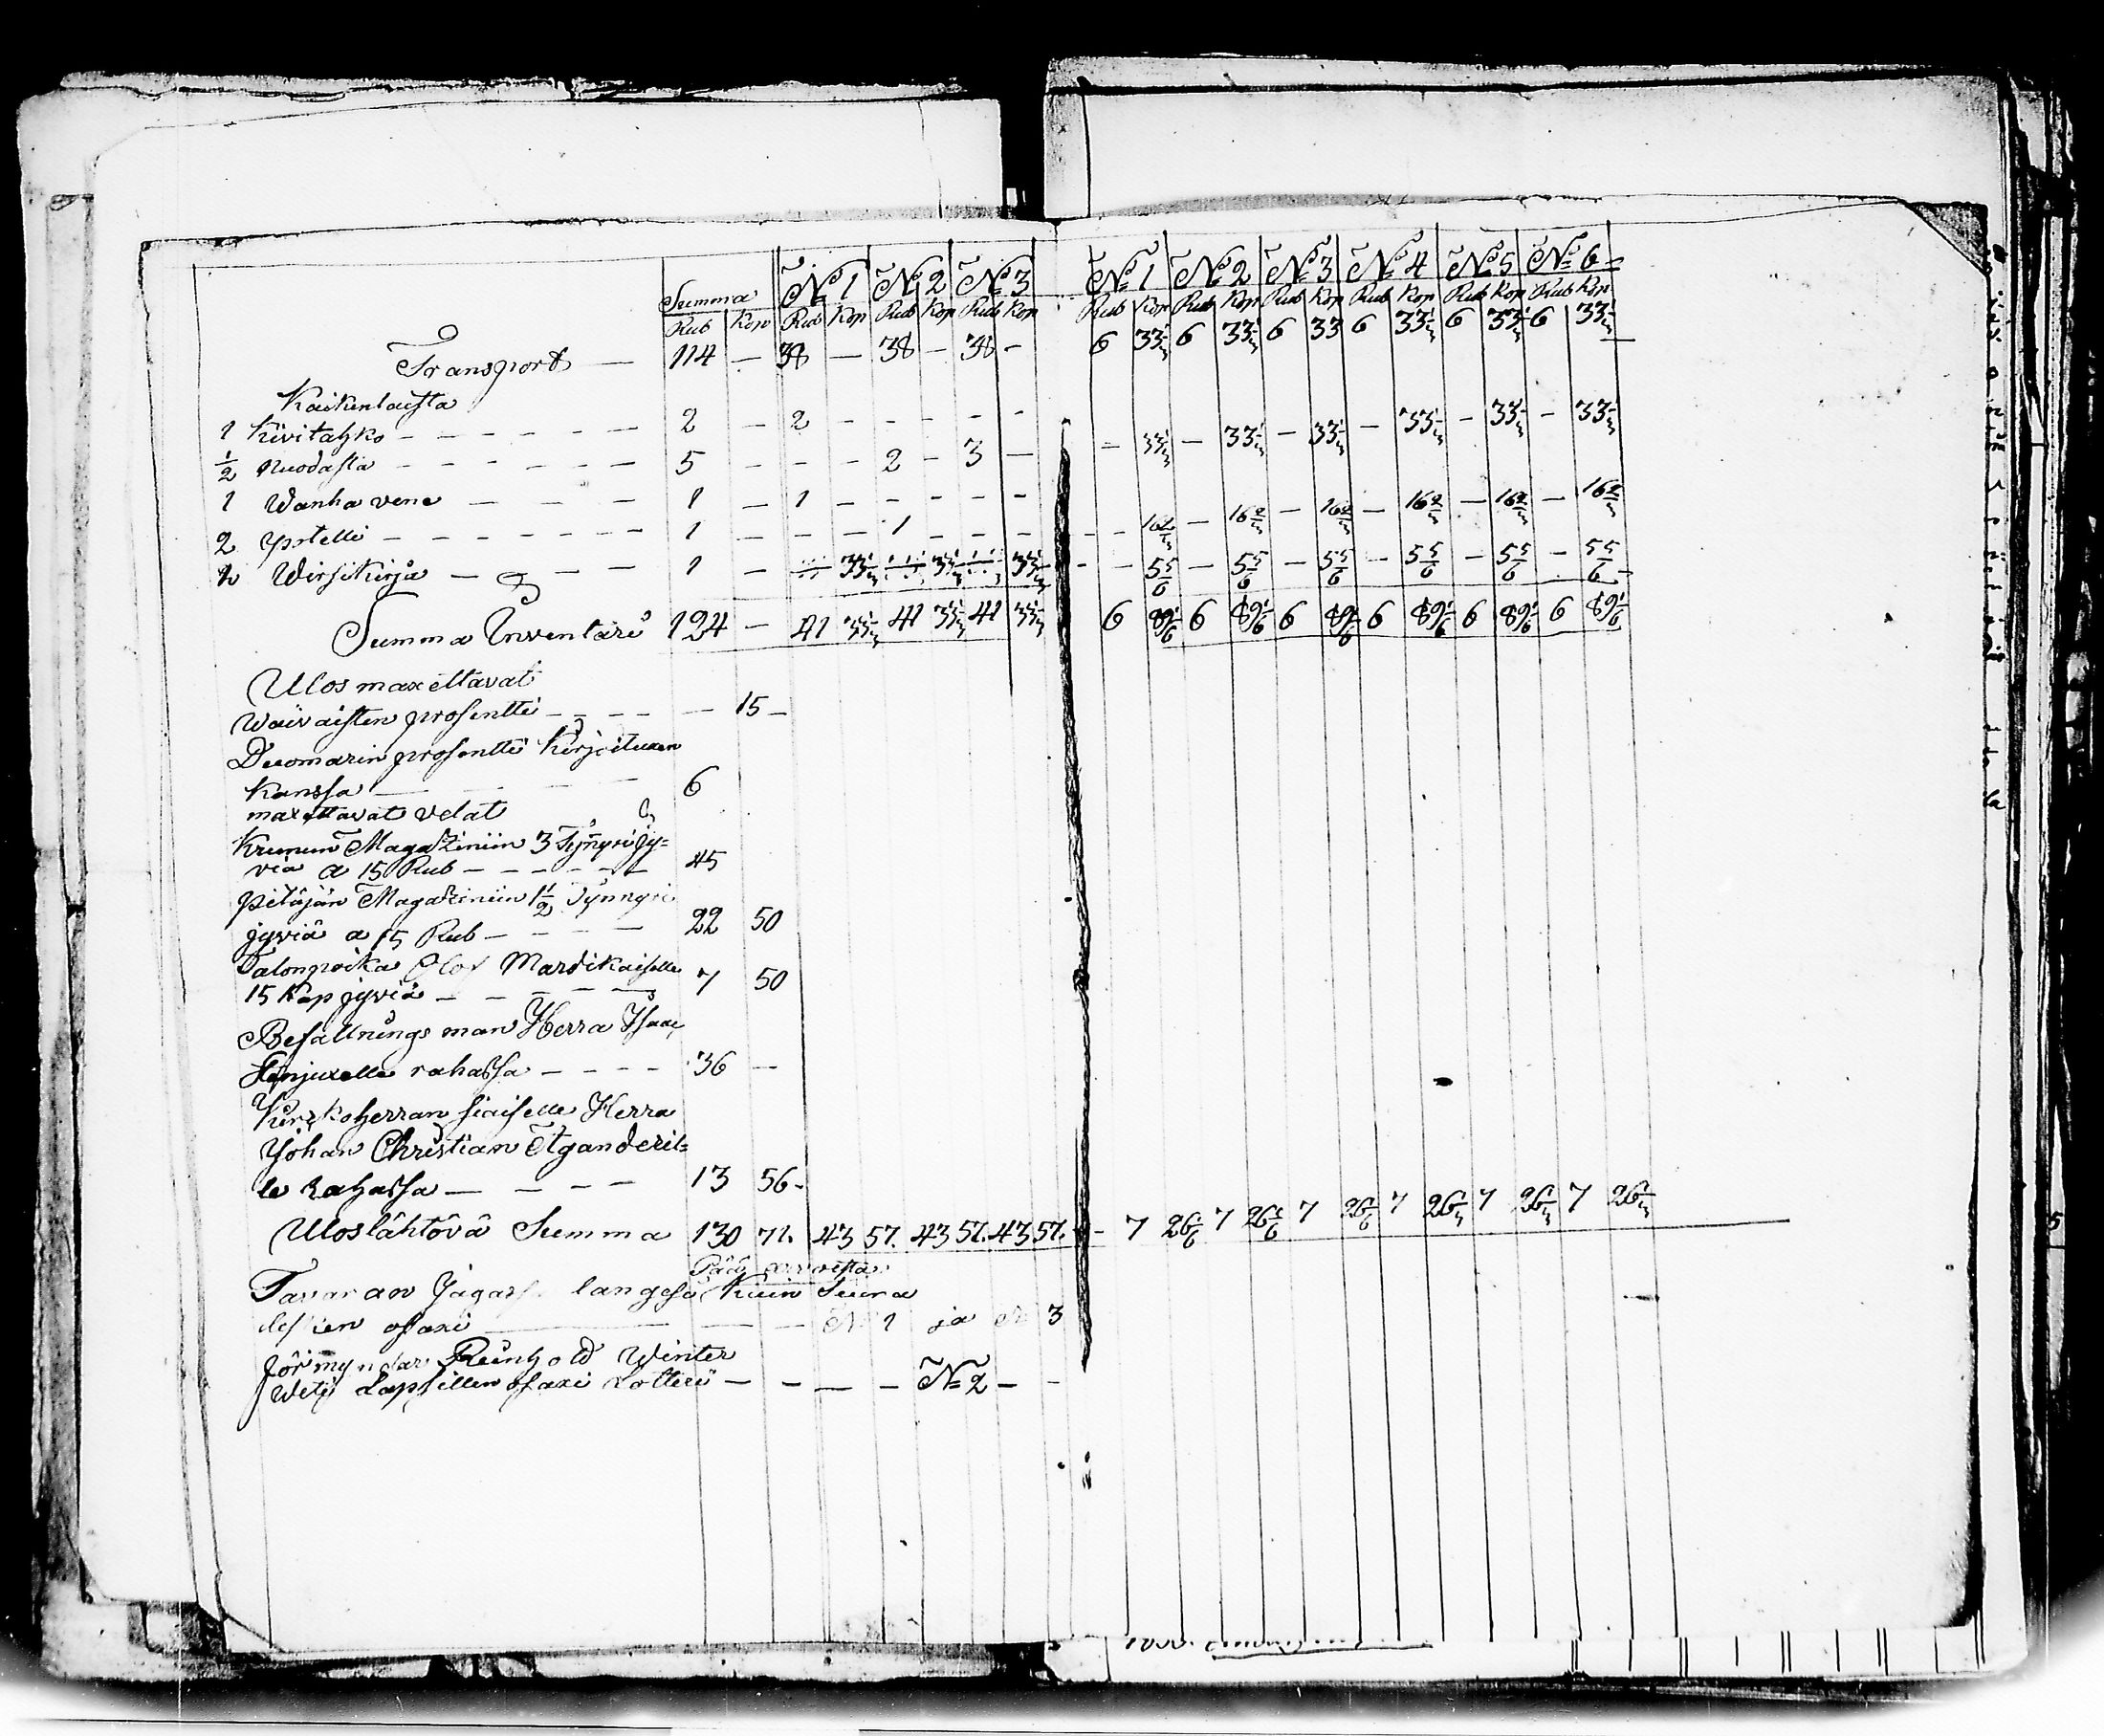 Summa № 1 № 2 № 3 № 1 № 2 № 3 № 4 № 5 № 6
Rub Kop Rub Kop Rub Kop Rub Kop Rub Kop Rub Kop Rub Kop Rub Kop Rub Kop Rub Kop
Transport — 114 — 38 — 38 — 38 — 6 33⅓ 6 33⅓ 6 33 6 33⅓ 6 33⅓ 6 33⅓
Kaikenlaista
1 Kivitahko — — — 2 — 2 — — — — — 33⅓ — 33⅓ — 33⅓ — 33⅓ — 33⅓ — 33⅓
½ nuodasta — — — 5 — — — 2 — 3 —
1 Wanha vene — — — 1 — 1 — — — — — 16⅔ — 16⅔ — 16⅔ — 16⅔ — 16⅔ — 16⅔
2 — — — 1 — — — 1 — — —
Wirsikirja — — — 1 — 33⅓ 33⅓ 33⅓ — 5⅚ — 5⅚ — 5⅚ — 5⅚ — 5⅚ — 5⅚
Summa Inventari 124 — 41 33⅓ 41 33⅓ 41 33⅓ 6 89⅙ 6 89⅙ 6 89⅙ 6 89⅙ 6 89⅙ 6 89⅙
Ulos maxettavat
waivaisten prosentti — — — — 15 —
Duomarin prosentti Kirjoituxen
kanssa — — — 6
maxettavat velat
Krunun Magaziniin 3 Tynnyri jy-
viä a 15 Rub — — — 45
pitäjän Magaziniin 1½ Tynnyri
jyviä a 15 Rub — — — 22 50
Talonpoika Olof Mardikaiselle
15 Kap jyviä — — — 7 50
Befallnings man Herra Isaac
rahassa — — — 36 —
Kirkoherran siaiselle Herra
Johan Christian
le rahassa — — — 13 56 -
Uloslähtövä Summa 130 71. 43 57. 43 57. 43 57. 7 26⅙ 7 26⅙ 7 26⅙ 7 7 7
Tavaran langesi Kuin
lesken osaxi — — — № 1 ja № 3
förmyndar Reinhold Winter
Weti Lapsillen osaxi Lotteri — — — — № 2 — —